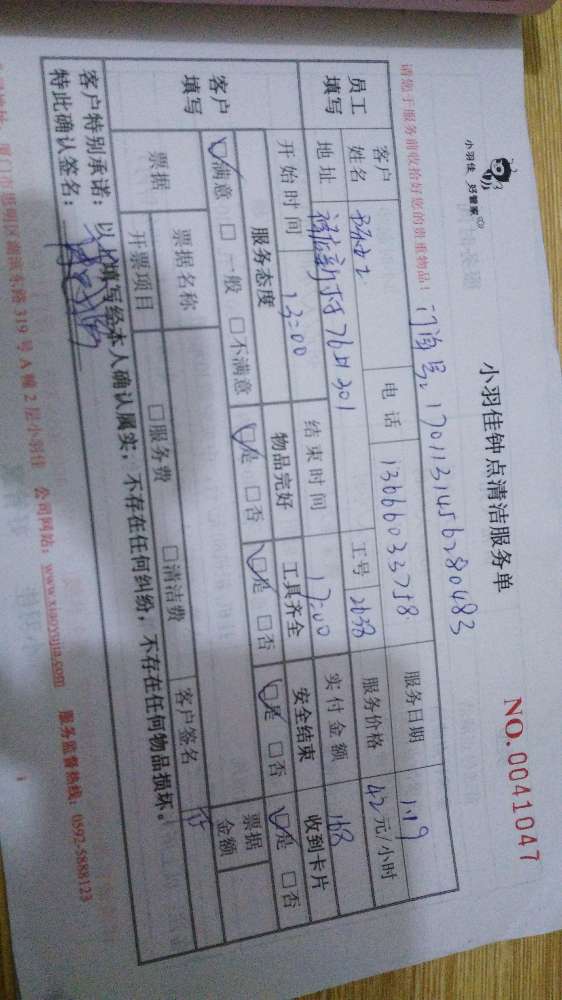 小羽佳 好管家
小羽佳钟点清洁服务单
NO. 0041047
请您于服务前收拾好您的贵重物品！
订单号: 1701131456280483
员工填写
客户姓名
电话 13666033758
服务日期 1.19
地址 76号301
工号 2658
服务价格 42元/小时
开始时间 13:00
结束时间 17:00
实付金额 168
客户填写
服务态度 物品完好 工具齐全 安全结束 收到卡片
☑满意 □一般 □不满意 ☑是 □否 ☑是 □否 ☑是 □否 ☑是 □否
票据
票据名称
票据金额
开票项目 □服务费 □清洁费 客户签名
客户特别承诺：以上填写经本人确认属实；不存在任何纠纷，不存在任何物品损坏。
特此确认签名：
厦门市思明区湖滨东路319号A幢2层小羽佳 公司网站：www.xiaoyujia.com 服务监督热线：0592-5888123